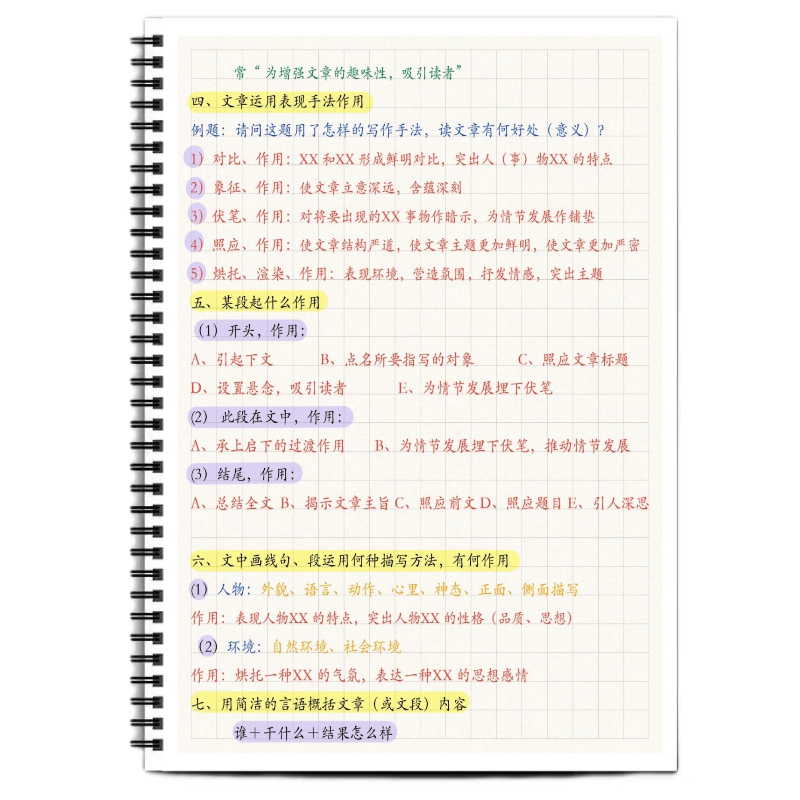 常“为增强文章的趣味性，吸引读者”
四、文章运用表现手法作用
例题：请问这题用了怎样的写作手法，读文章有何好处（意义）？
1）对比、作用：XX 和XX 形成鲜明对比，突出人（事）物XX 的特点
2）象征、作用：使文章立意深远，含蕴深刻
3）伏笔、作用：对将要出现的XX 事物作暗示，为情节发展作铺垫
4）照应、作用：使文章结构严道，使文章主题更加鲜明，使文章更加严密
5）烘托、渲染、作用：表现环境，营造氛围，抒发情感，突出主题
五、某段起什么作用
（1）开头，作用：
A、引起下文 B、点名所要指写的对象 C、照应文章标题
D、设置悬念，吸引读者 E、为情节发展埋下伏笔
(2）此段在文中，作用：
A、承上启下的过渡作用 B、为情节发展埋下伏笔，推动情节发展
(3）结尾，作用：
A、总结全文 B、揭示文章主旨 C、照应前文 D、照应题目 E、引人深思
六、文中画线句、段运用何种描写方法，有何作用
(1）人物：外貌、语言、动作、心里、神态、正面、侧面描写
作用：表现人物XX 的特点，突出人物XX 的性格（品质、思想）
（2）环境：自然环境、社会环境
作用：烘托一种XX 的气氛，表达一种XX 的思想感情
七、用简洁的言语概括文章（或文段）内容
谁＋干什么＋结果怎么样